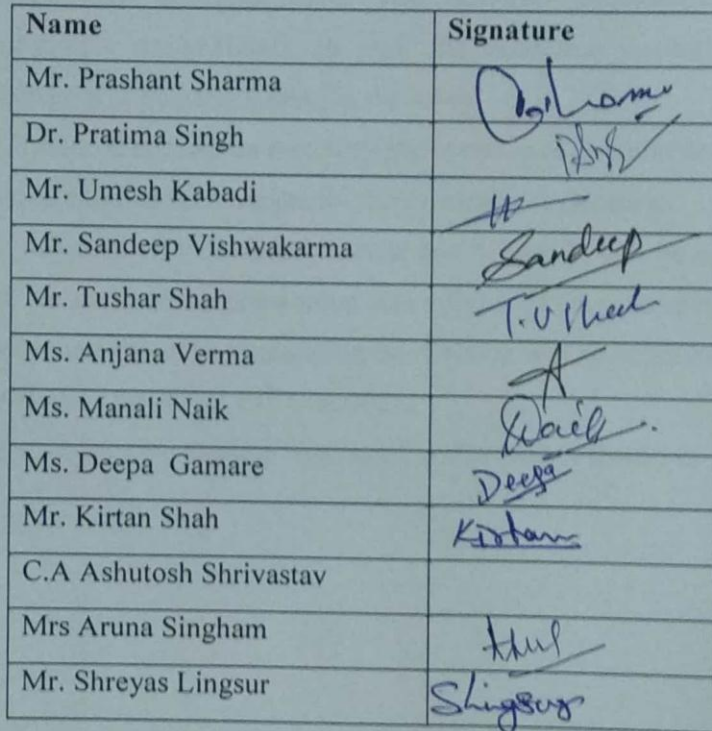 Name Signature
Mr. Prashant Sharma
Dr. Pratima Singh
Mr. Umesh Kabadi
Mr. Sandeep Vishwakarma Sandeep
Mr. Tushar Shah
Ms. Anjana Verma
Ms. Manali Naik Naik
Ms. Deepa Gamare Deepa
Mr. Kirtan Shah Kirtan
C.A Ashutosh Shrivastav
Mrs Aruna Singham
Mr. Shreyas Lingsur Slingsur